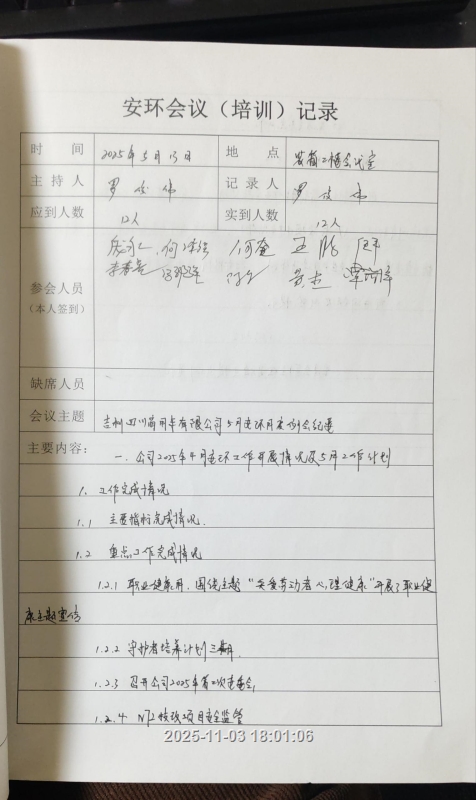 安环会议（培训）记录
时 间 2025年5月13日 地 点 装着工博会议室
主持人 罗 伟 记录人 罗 伟
应到人数 12人 实到人数 12人
参会人员
（本人签到）
缺席人员
会议主题 吉利四川商用车有限公司5月安环月度例会纪要
主要内容：
一、公司2025年4月安环工作开展情况及5月工作计划
1. 工作完成情况
1.1 主要指标完成情况.
1.2 重点工作完成情况
1.2.1 职业健康月，围绕主题“关爱劳动者心理健康”开展了职业健
康主题宣传
1.2.2 守护者培养计划三期.
1.2.3 召开公司2025年第二次安委会,
1.2.4 N72技改项目安全监管
2025-11-03 18:01:06